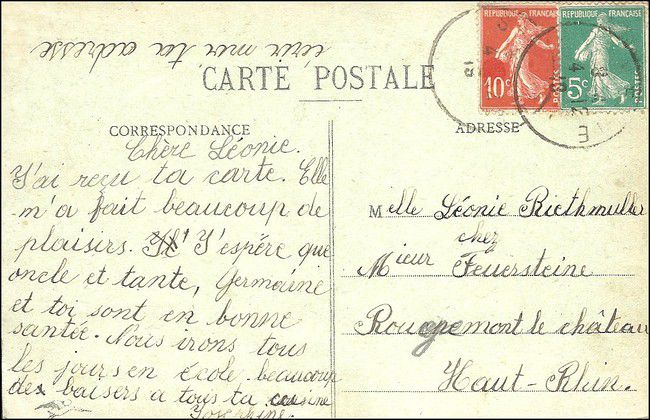 RÉPUBLIQUE FRANÇAISE
POSTES
10c
RÉPUBLIQUE FRANÇAISE
POSTES
5c
CARTE POSTALE
CORRESPONDANCE
ADRESSE
Chère Léonie.
J'ai reçu ta carte. Elle
m'a fait beaucoup de
plaisirs. J'espére que
oncle et tante, Germaine
et toi sont en bonne
santée. Nous irons tous
les jours en école. beaucoup
des baisers a tous ta cousine
Josephine.
Melle Léonie Riethmuller
chez
Mieur Feuersteine
Rougemont le château
Haut-Rhin.
mer ta adresse